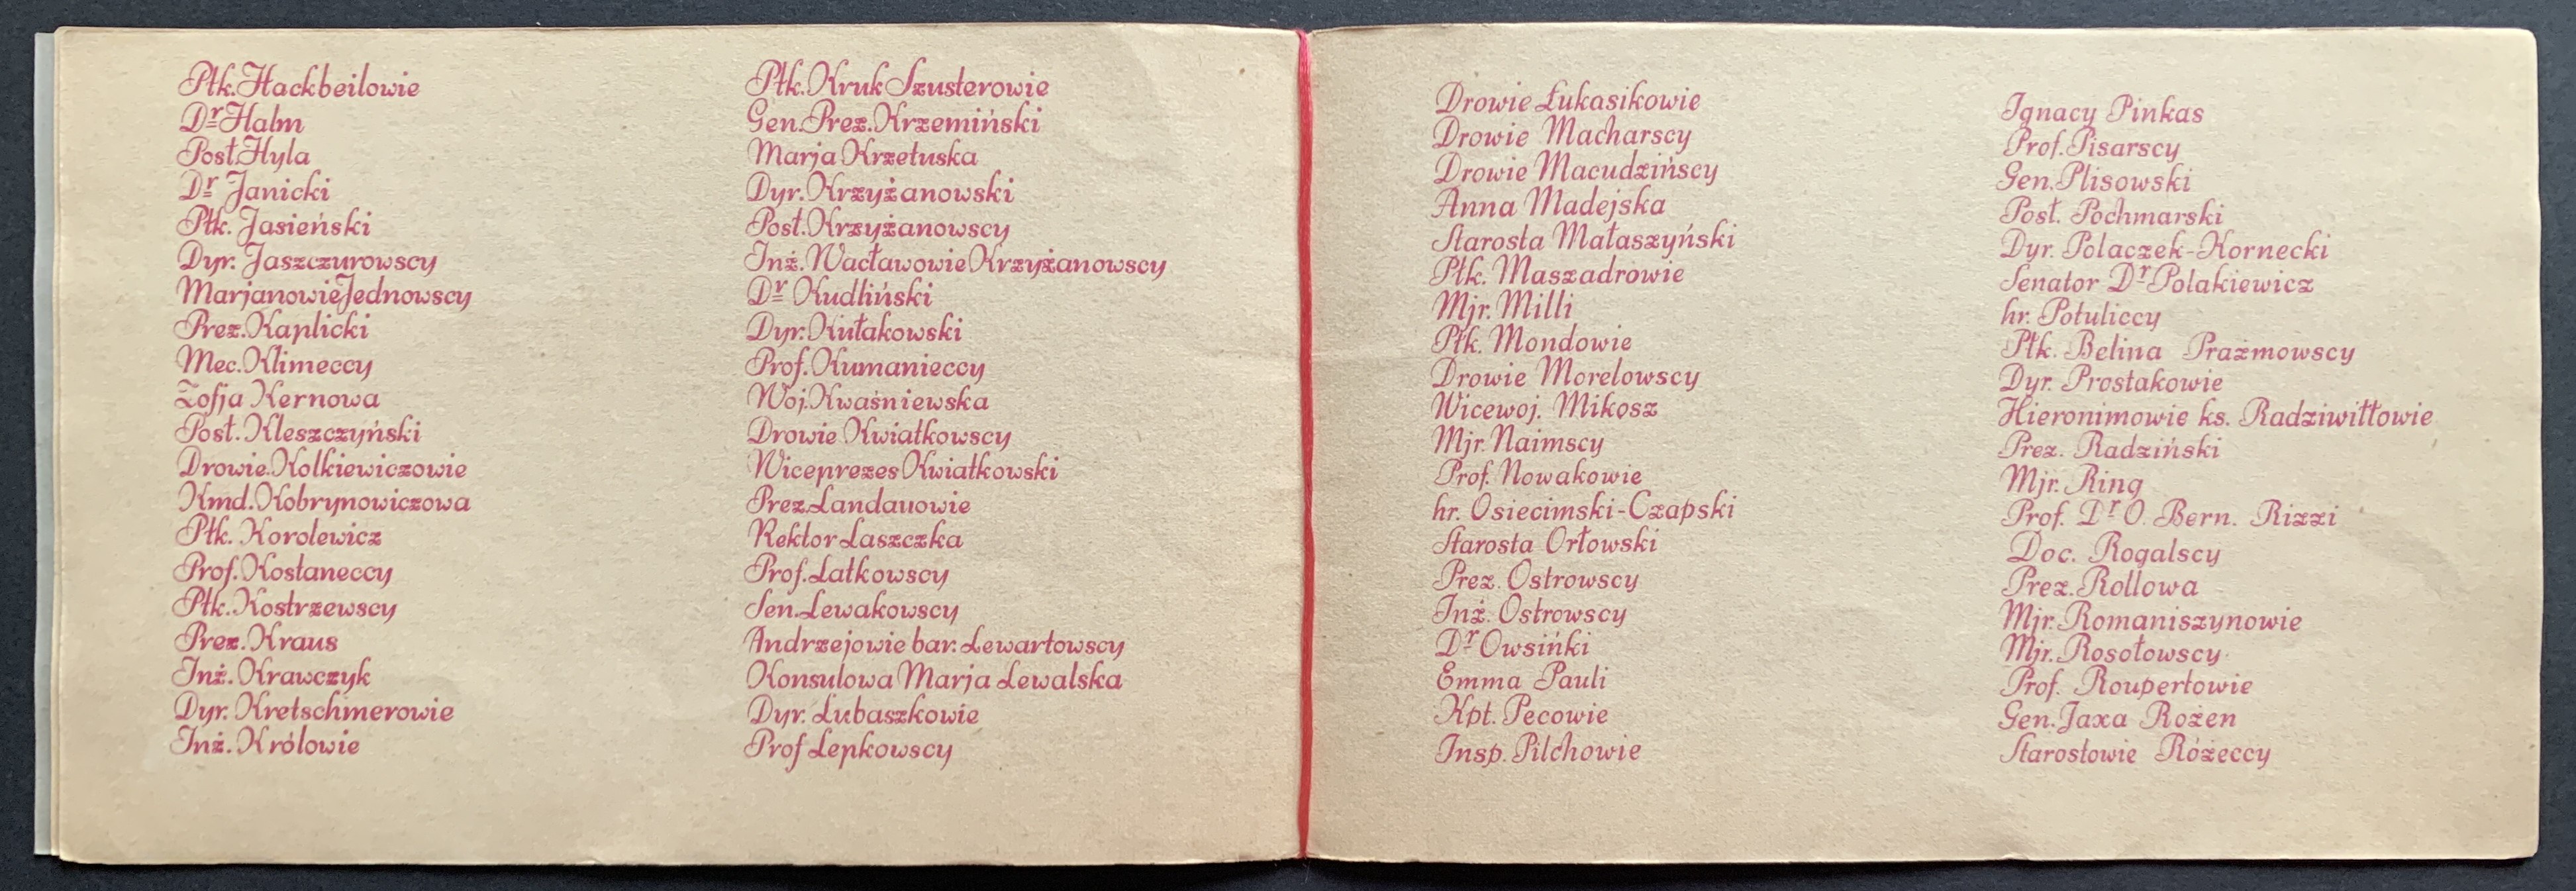 Płk. Hackbeilowie
Dr Halm
Poseł Hyla
Dr Janicki
Płk. Jasieński
Dyr. Jaszczurowscy
Marjanowie Jednowscy
Prez. Kaplicki
Mec. Klimeccy
Zofja Kernowa
Pos. Kleszczyński
Drowie Kolkiewiczowie
Kmd. Kobrynowiczowa
Płk. Korolewicz
Prof. Kostaneccy
Płk. Kostrzewscy
Prez. Kraus
Inż. Krawczyk
Dyr. Kretschmerowie
Inż. Królowie
Płk. Kruk Szusterowie
Gen. Prez. Krzemiński
Marja Krzetuska
Dyr. Krzyżanowski
Post. Krzyżanowscy
Inż. Wacławowie Krzyżanowscy
Dr Kudliński
Dyr. Kułakowski
Prof. Kumanieccy
Woj. Kwaśniewska
Drowie Kwiatkowscy
Wiceprezes Kwiatkowski
Prez. Landauowie
Rektor Laszczka
Prof. Latkowscy
Sen. Lewakowscy
Andrzejowie bar. Lewartowscy
Konsulowa Marja Lewalska
Dyr. Lubaszkowie
Prof Lepkowscy
Drowie Łukasikowie
Drowie Macharscy
Drowie Macudzińscy
Anna Madejska
Starosta Małaszyński
Płk. Maszadrowie
Mjr. Milli
Płk. Mondowie
Drowie Morelowscy
Wicewoj. Mikosz
Mjr. Naimscy
Prof. Nowakowie
hr. Osiecimski-Czapski
Starosta Orłowski
Prez. Ostrowscy
Inż. Ostrowscy
Dr Owsiński
Emma Pauli
Kpt. Pecowie
Insp. Pilchowie
Ignacy Pinkas
Prof. Pisarscy
Gen. Plisowski
Post. Pochmarski
Dyr. Polaczek-Kornecki
Senator Dr Polakiewicz
hr. Potuliccy
Płk. Belina Prażmowscy
Dyr. Prostakowie
Hieronimowie ks. Radziwiłłowie
Prez. Radziński
Mjr. Ring
Prof. Dr O. Bern. Rizzi
Doc. Rogalscy
Prez. Rollowa
Mjr. Romaniszynowie
Mjr. Rosołowscy
Prof. Roupertowie
Gen. Jaxa Rożen
Starostowie Różeccy